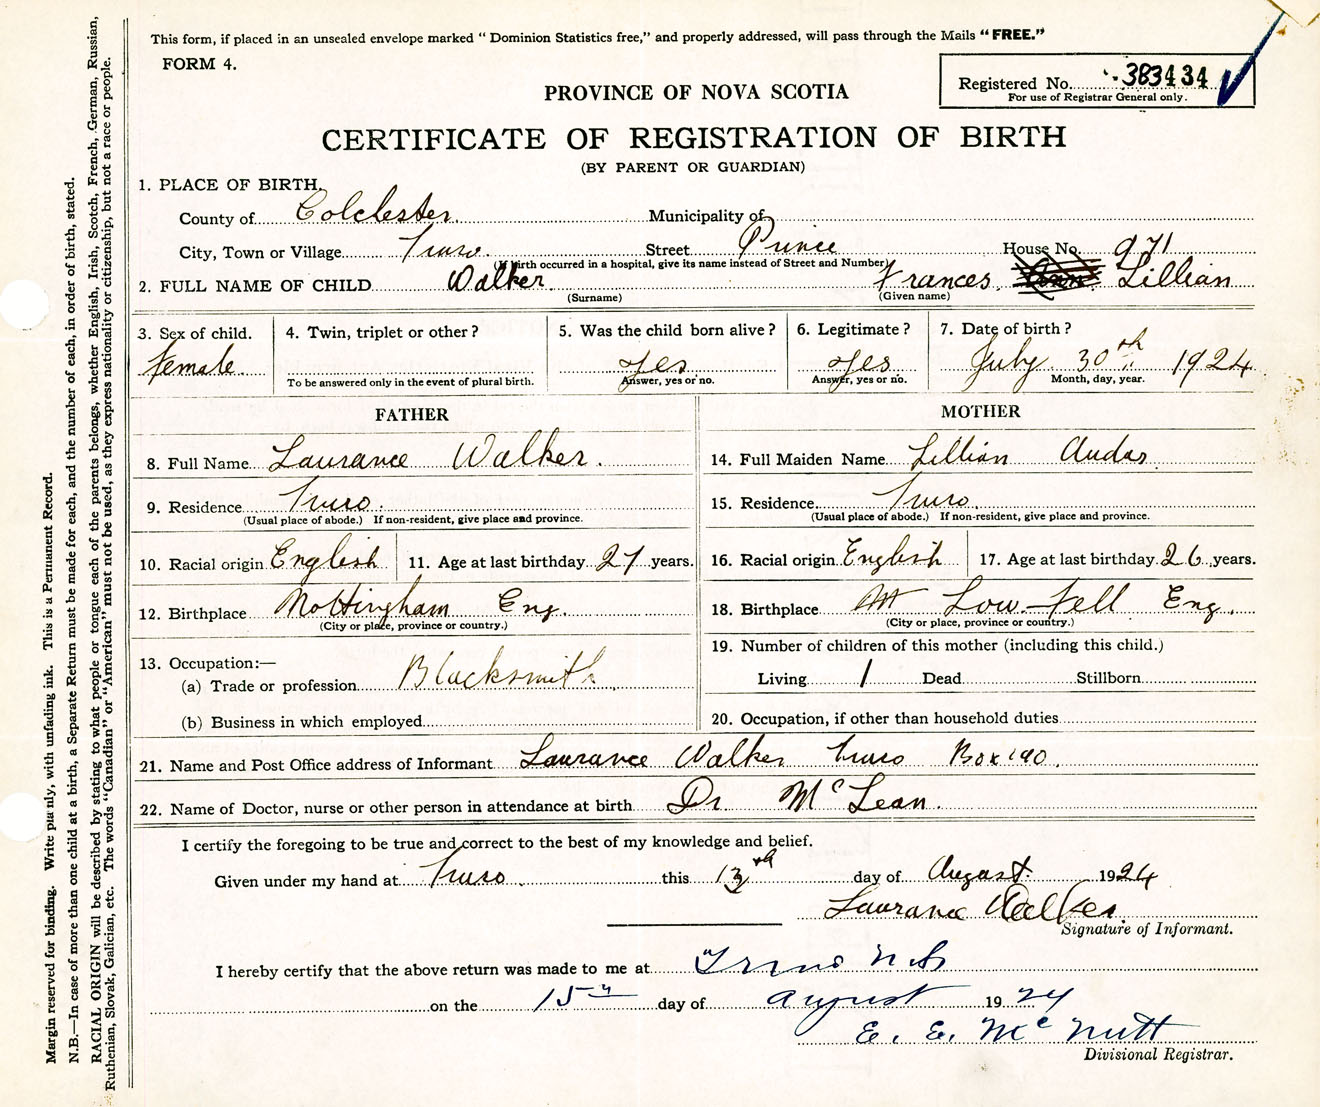 This form, if placed in an unsealed envelope marked “ Dominion Statistics free,” and properly addressed, will pass through the Mails “ FREE.”
FORM 4.
Registered No. 383434
For use of Registrar General only.
PROVINCE OF NOVA SCOTIA
CERTIFICATE OF REGISTRATION OF BIRTH
(BY PARENT OR GUARDIAN)
1. PLACE OF BIRTH.
County of Colchester Municipality of
City, Town or Village Truro. Street Prince House No. 971
(If birth occurred in a hospital, give its name instead of Street and Number)
2. FULL NAME OF CHILD Walker. Frances Lillian
(Surname) (Given name)
3. Sex of child. 4. Twin, triplet or other ? 5. Was the child born alive ? 6. Legitimate ? 7. Date of birth ?
Female. yes yes July 30th 1924
To be answered only in the event of plural birth. Answer, yes or no. Answer, yes or no. Month, day, year.
FATHER MOTHER
8. Full Name Laurance Walker. 14. Full Maiden Name Lillian Audas
9. Residence Truro. 15. Residence Truro
(Usual place of abode.) If non-resident, give place and province. (Usual place of abode.) If non-resident, give place and province.
10. Racial origin English 11. Age at last birthday 27 years. 16. Racial origin English 17. Age at last birthday 26 years.
12. Birthplace Nottingham Eng. 18. Birthplace Low-fell Eng.
(City or place, province or country.) (City or place, province or country.)
19. Number of children of this mother (including this child.)
13. Occupation:—
(a) Trade or profession Blacksmith Living 1 Dead Stillborn
(b) Business in which employed 20. Occupation, if other than household duties
21. Name and Post Office address of Informant Laurance Walker Truro Box 190.
22. Name of Doctor, nurse or other person in attendance at birth Dr. McLean.
I certify the foregoing to be true and correct to the best of my knowledge and belief.
Given under my hand at Truro. this 13th day of August 1924
Laurance Walker.
Signature of Informant.
I hereby certify that the above return was made to me at Truro N.S
on the 15th day of August 1924
E. E. McNutt
Divisional Registrar.
Margin reserved for binding. Write plainly, with unfading ink. This is a Permanent Record.
N.B.—In case of more than one child at a birth, a Separate Return must be made for each, and the number of each, in order of birth, stated.
RACIAL ORIGIN will be described by stating to what people or tongue each of the parents belongs, whether English, Irish, Scotch, French, German, Russian,
Ruthenian, Slovak, Galician, etc. The words “Canadian” or “American” must not be used, as they express nationality or citizenship, but not a race or people.